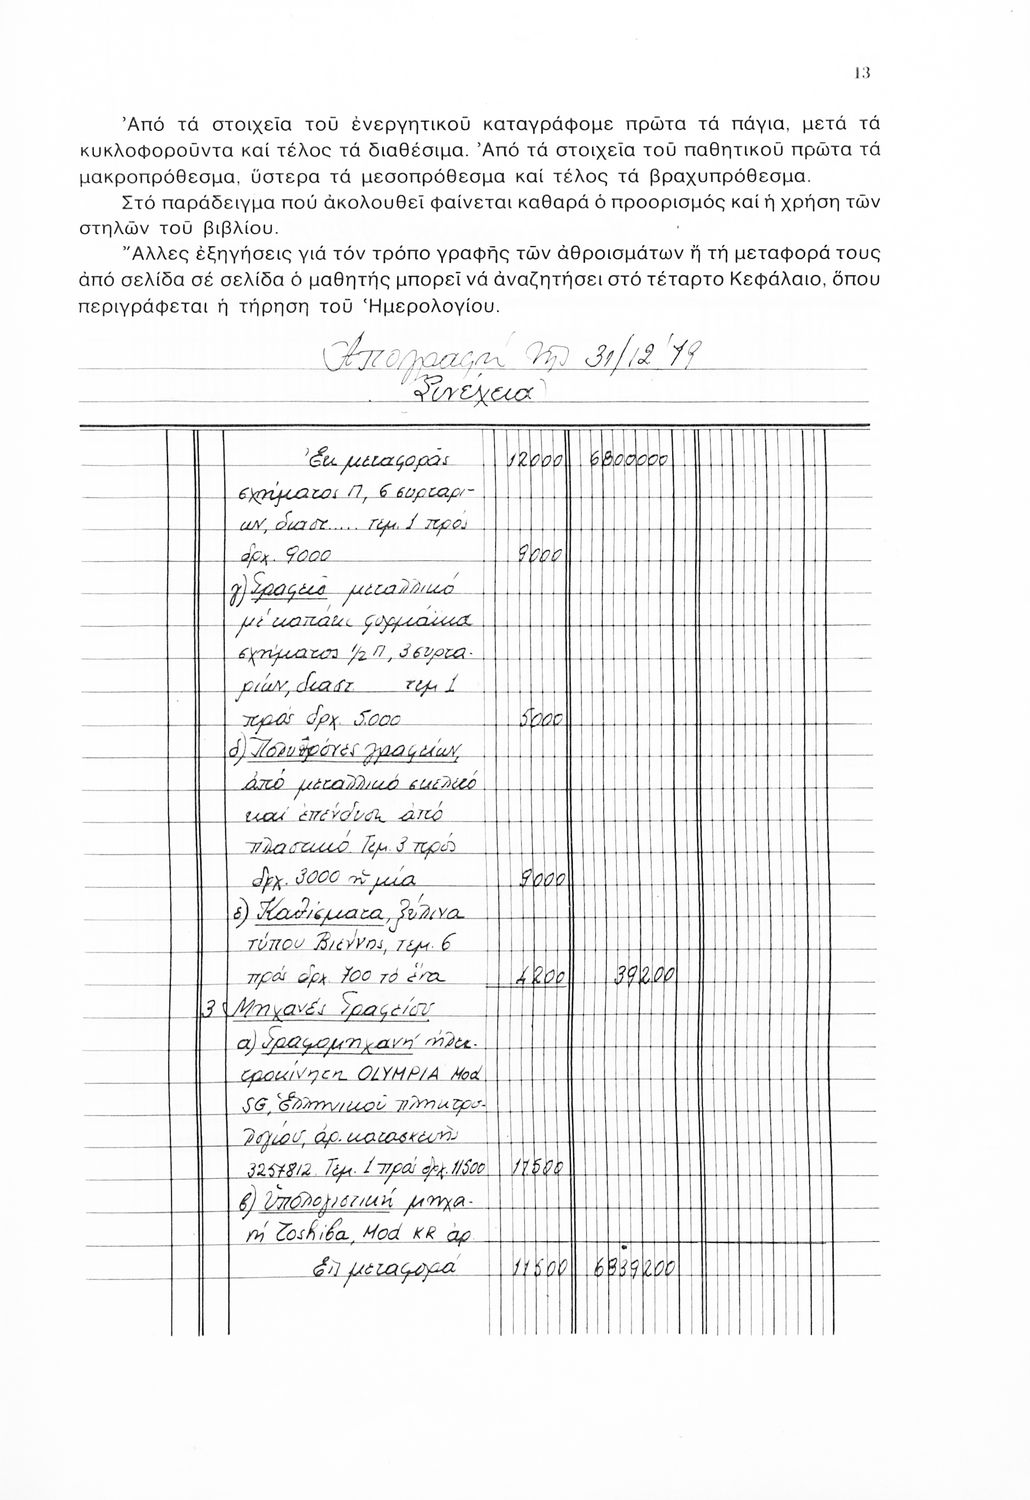 13
Ἀπό τά στοιχεῖα τοῦ ἐνεργητικοῦ καταγράφομε πρῶτα τά πάγια, μετά τά
κυκλοφοροῦντα καί τέλος τά διαθέσιμα. Ἀπό τά στοιχεῖα τοῦ παθητικοῦ πρῶτα τά
μακροπρόθεσμα, ὕστερα τά μεσοπρόθεσμα καί τέλος τά βραχυπρόθεσμα.
Στό παράδειγμα πού ἀκολουθεῖ φαίνεται καθαρά ὁ προορισμός καί ἡ χρήση τῶν
στηλῶν τοῦ βιβλίου.
Ἄλλες ἐξηγήσεις γιά τόν τρόπο γραφῆς τῶν ἀθροισμάτων ἤ τή μεταφορά τους
ἀπό σελίδα σέ σελίδα ὁ μαθητής μπορεῖ νά ἀναζητήσει στό τέταρτο Κεφάλαιο, ὅπου
περιγράφεται ἡ τήρηση τοῦ Ἡμερολογίου.
Ἀπογραφή τῆς 31/12 '79
Συνέχεια
Ἐκ μεταφορᾶς 12000 6800000
σχήματος Π, 6 συρταρι-
ων, διαστ..... τεμ. 1 πρός
δρχ. 9000 9000
γ) Γραφεῖο μεταλλικό
μέ καπάκι φορμάϊκα
σχήματος 1/2 Π, 3 συρτα-
ριών, διαστ τεμ 1
πρός δρχ. 5.000 5000
δ) Πολυθρόνες γραφείων,
ἀπό μεταλλικό σκελετό
καί ἐπένδυση ἀπό
πλαστικό. Τεμ. 3 πρός
δρχ. 3000 ἡ μία 9000
ε) Καθίσματα, ξύλινα
τύπου Βιέννης, τεμ. 6
πρός δρχ. 700 τό ἕνα 4200 39200
3 Μηχανές Γραφείου
α) Γραφομηχανή ἠλεκ-
τροκίνητη OLYMPIA Mod
SG, Ἑλληνικοῦ πληκτρο-
λογίου, ἀρ. κατασκευῆς
3257812. Τεμ. 1 πρός δρχ. 11500 11500
β) Ὑπολογιστική μηχα-
νή Toshiba, Mod KR ἀρ
Ἐπ μεταφορά 11500 6839200